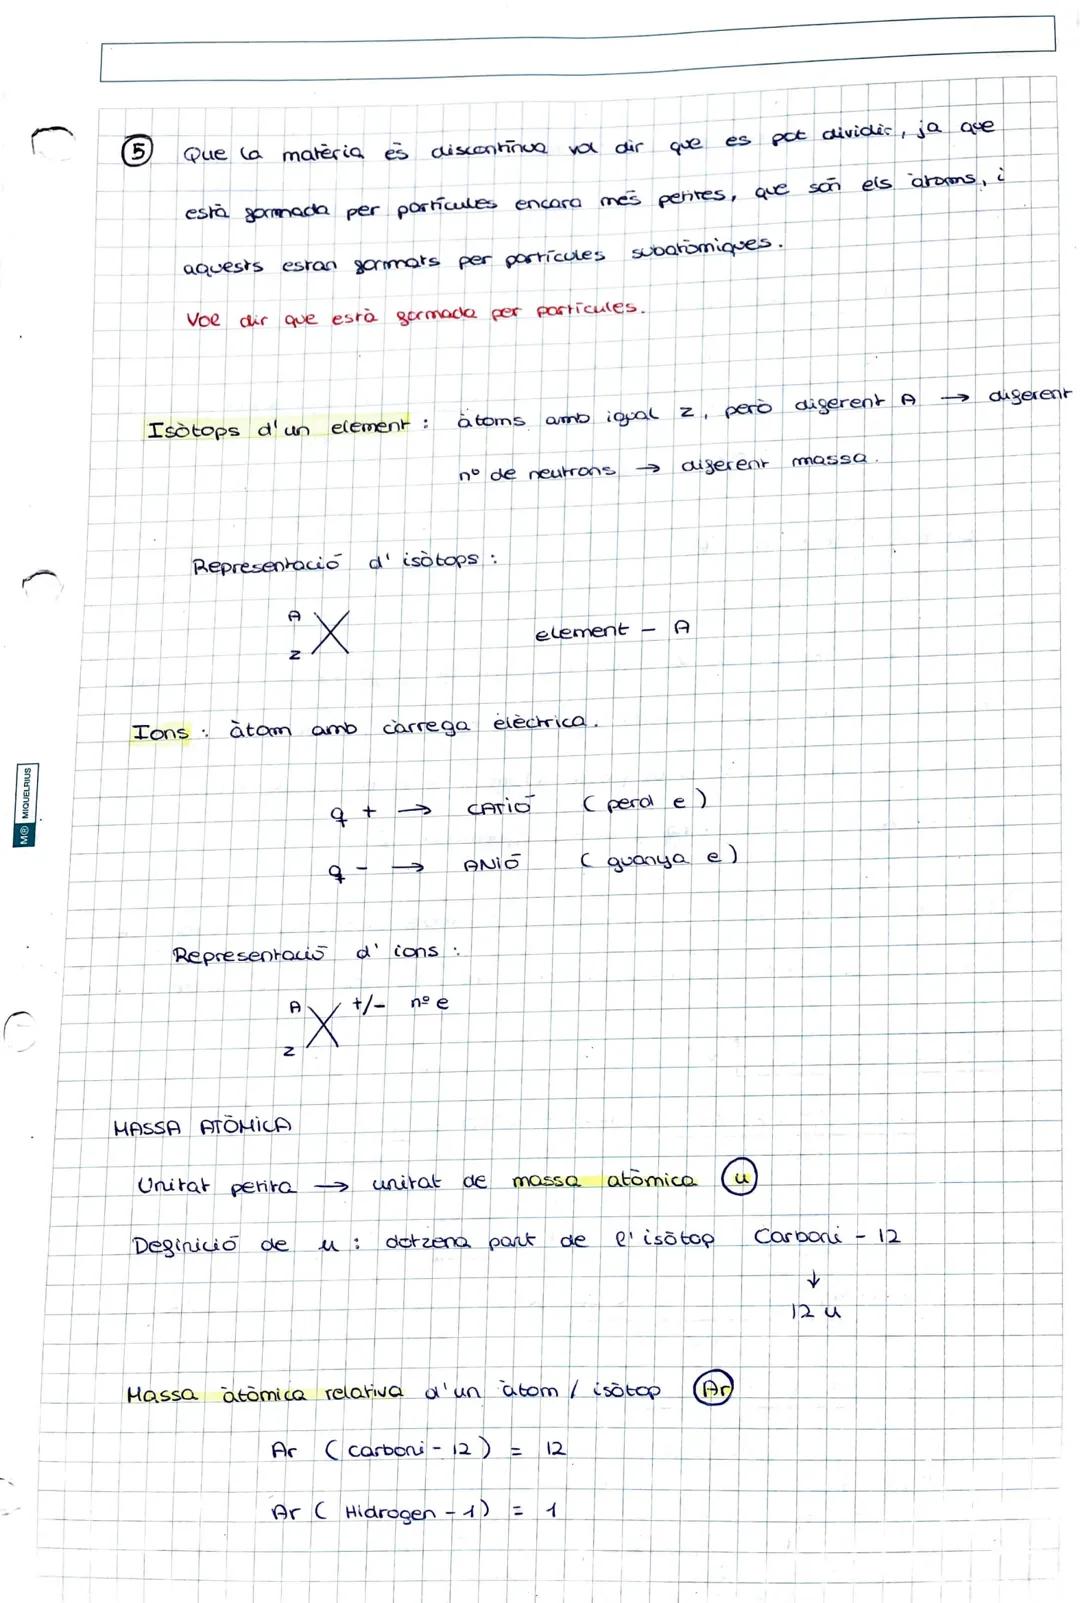 5 Que la matèria és discontínua vol dir que es pot dividir, ja que
està formada per partícules encara més petites, que són els àtoms, i
aquests estan formats per partícules subatòmiques.
Vol dir que està formada per partícules.
Isòtops d'un element : àtoms amb igual Z, però diferent A → diferent
nº de neutrons → diferent massa.
Representació d'isòtops :
A
X element - A
Z
Ions : àtom amb càrrega elèctrica.
q + → CATIÓ ( perd e )
q - → ANIÓ ( guanya e )
Representació d'ions :
A +/- nº e
X
Z
MASSA ATÒMICA
Unitat petita → unitat de massa atòmica u
Definició de u : dotzena part de l'isòtop Carboni - 12
↓
12 u
Massa atòmica relativa d'un àtom / isòtop Ar
Ar ( carboni - 12 ) = 12
Ar ( Hidrogen - 1 ) = 1
M® MIQUELRIUS